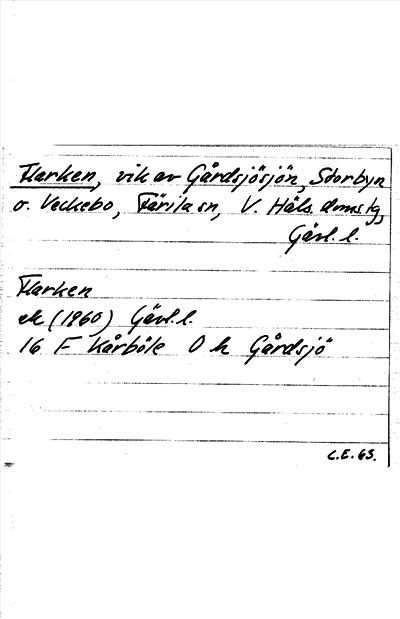 Flarken, vik av Gårdsjösjön, Storbyn
o. Veckebo, Färila sn, V. Häls. dmstg,
Gävl. l.
Flarken
ek (1960) Gävl. l.
16 F Kårböle O h Gårdsjö
C.E. 63.